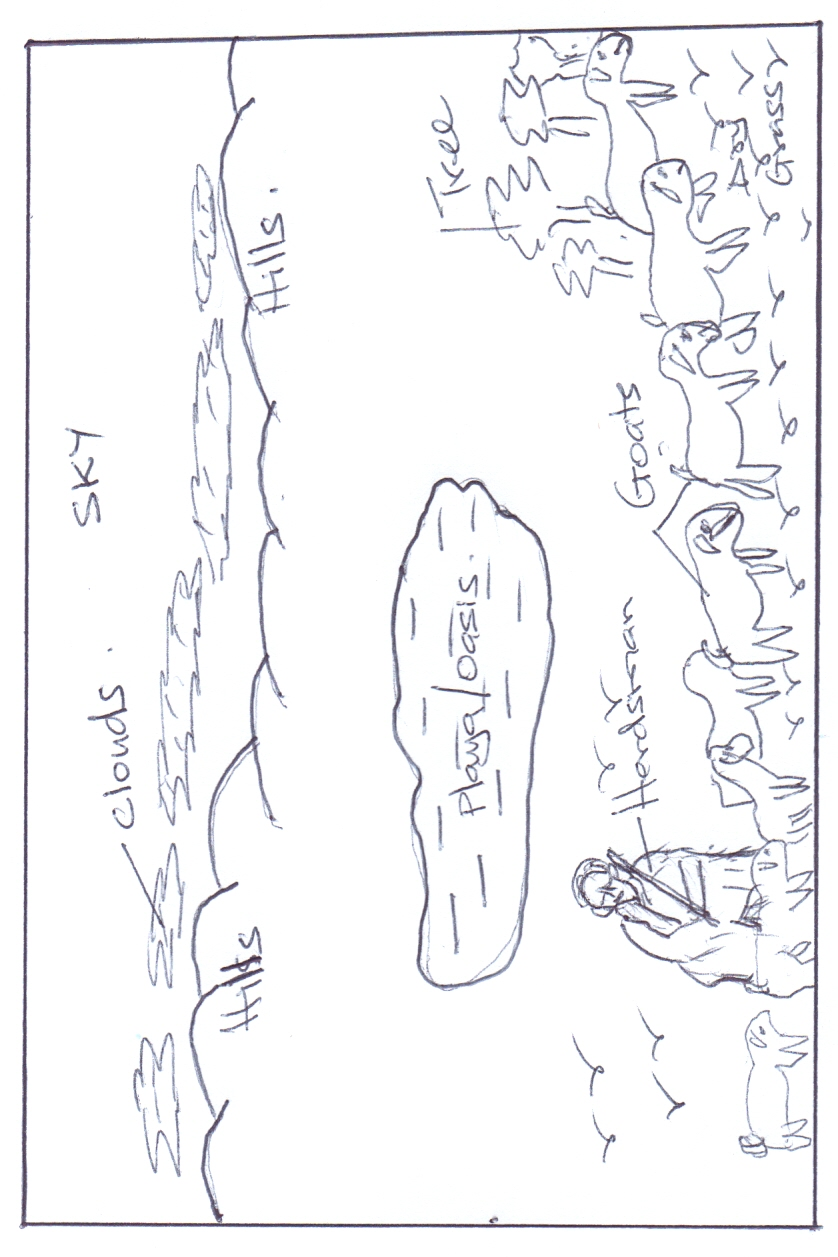 SKY
Clouds.
Hills
Hills.
Playa/oasis.
Tree
Herdsman
Goats
Dry
Grass